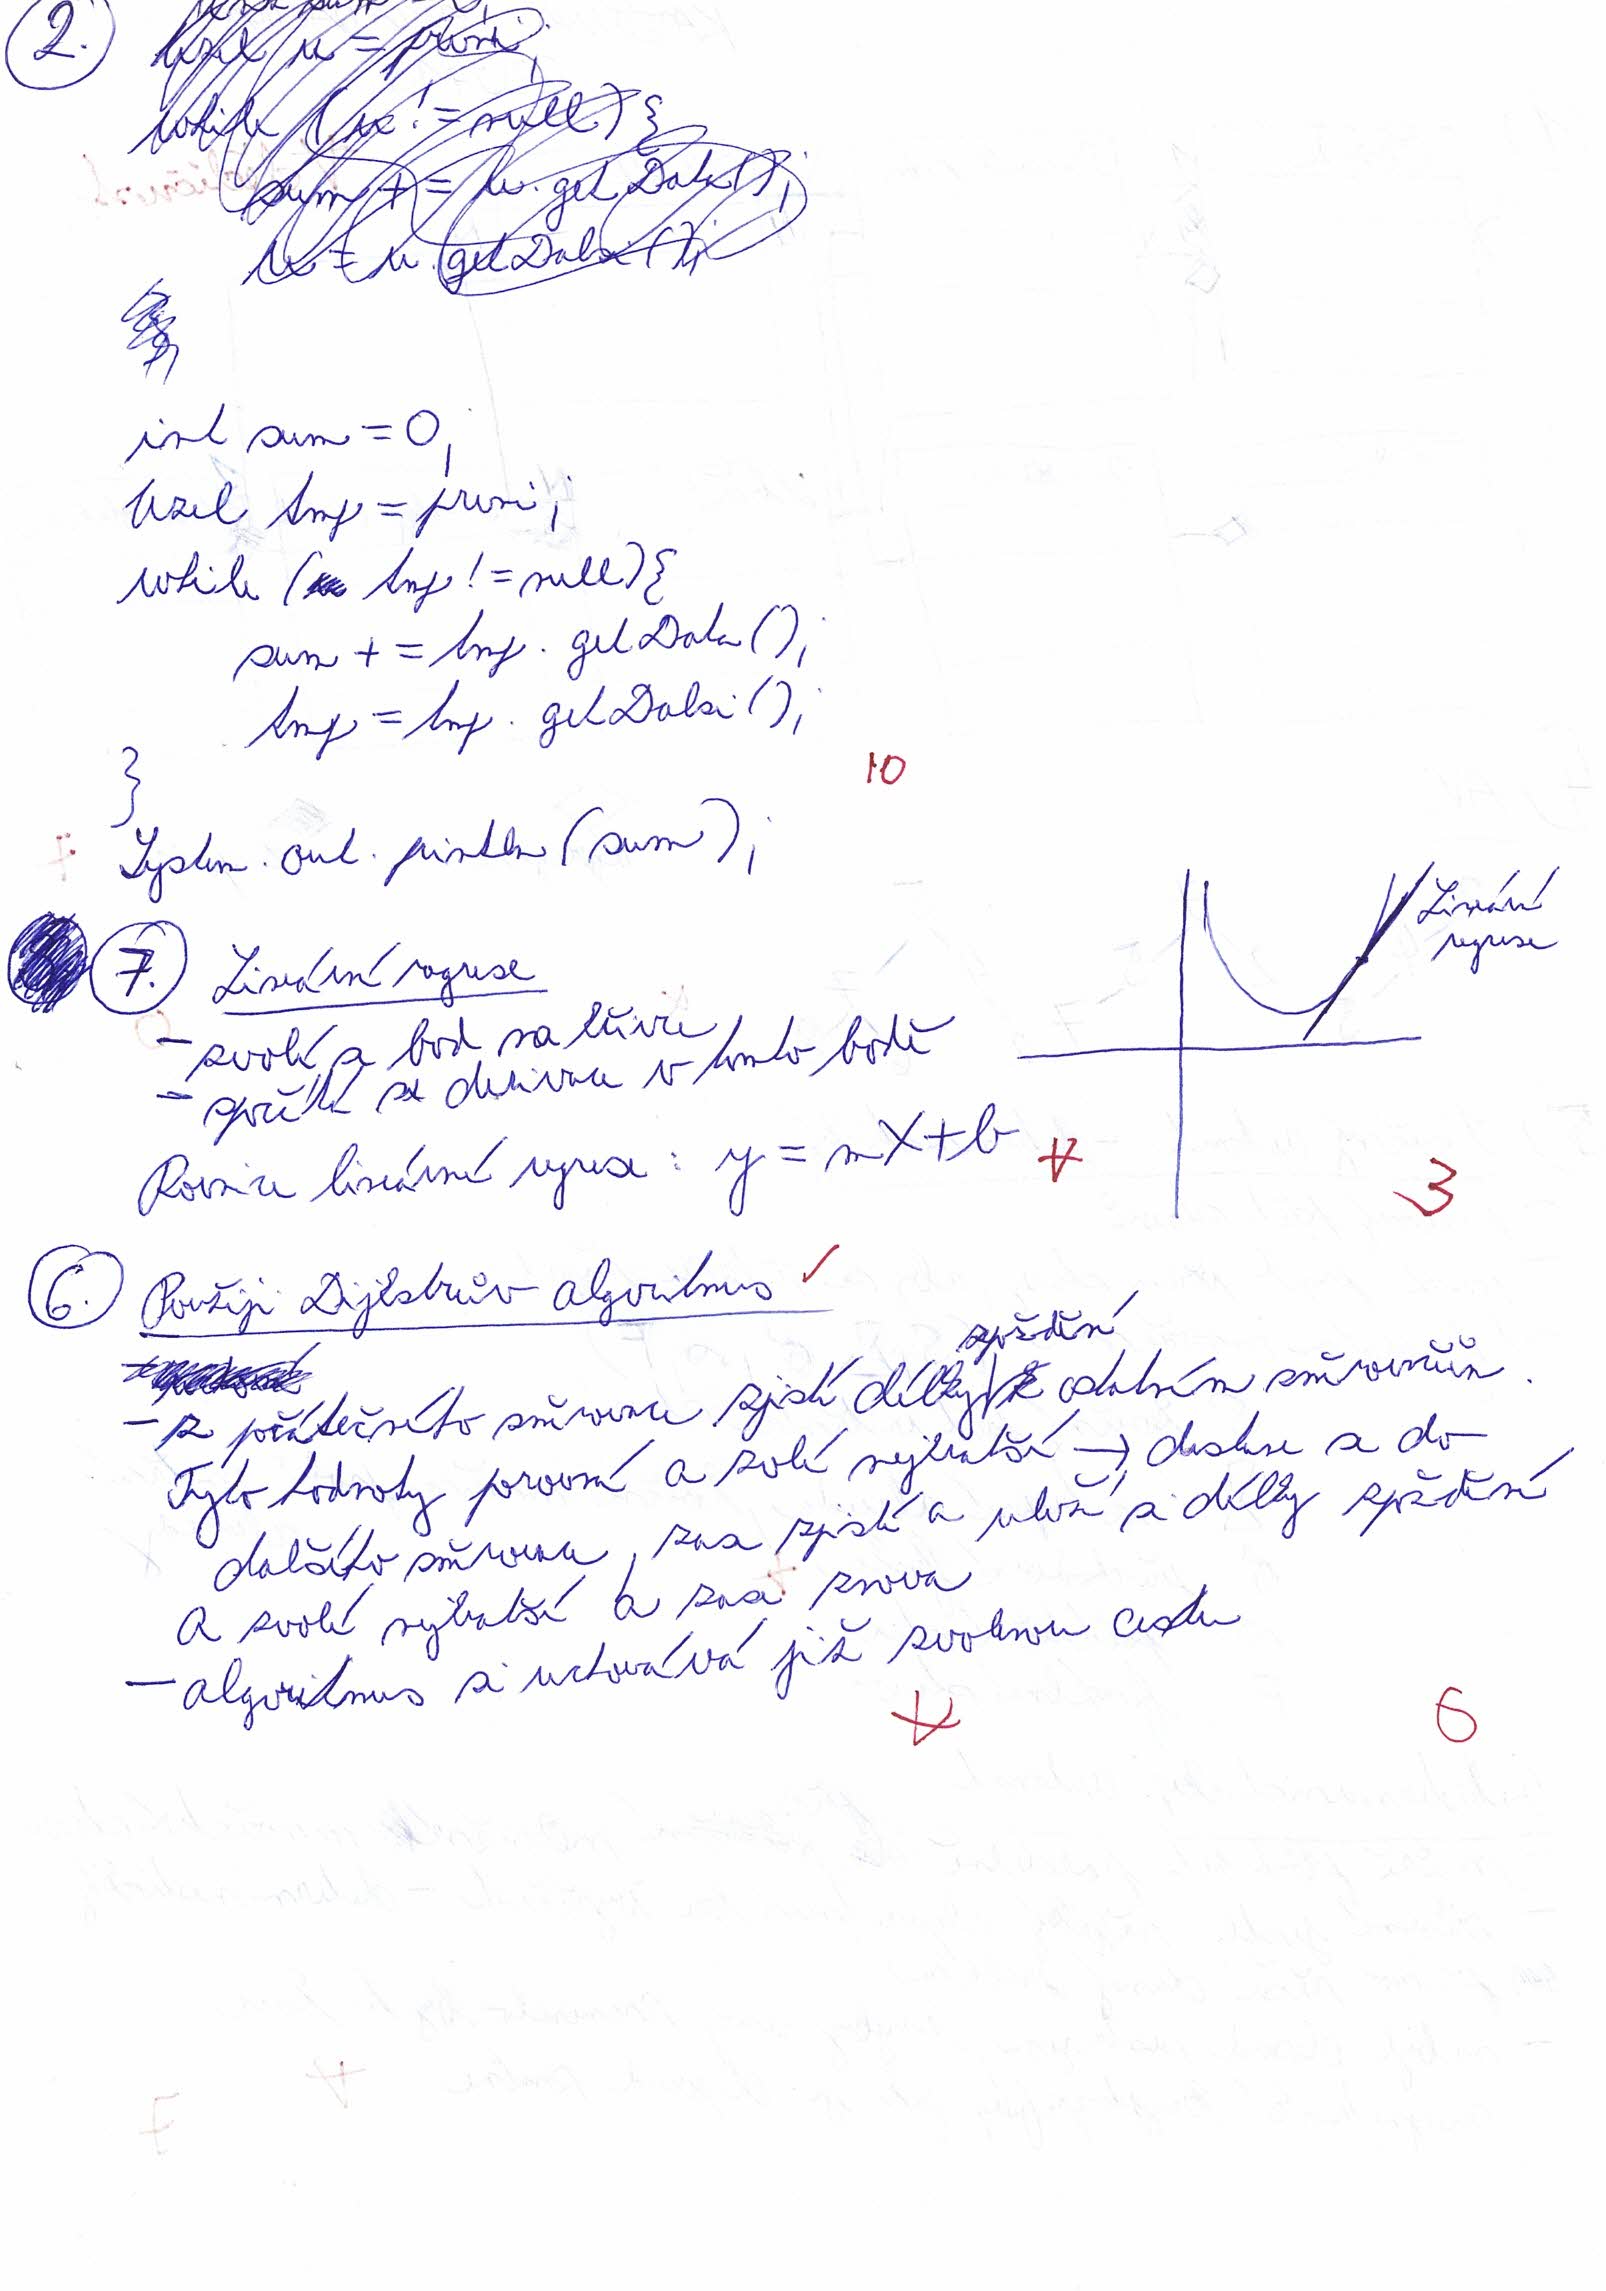 2.
Uzel u = prvni;
while (u != null) {
sum += u.getData();
u = u.getDalsi();
int sum = 0;
Uzel tmp = prvni;
while (tmp != null) {
sum += tmp.getData();
tmp = tmp.getDalsi();
}
10
System.out.println(sum);
Lineární
regrese
7. Lineární regrese
- zvolí se bod na křivce
- spočítá se derivace v tomto bodě
Rovnice lineární regrese: y = mX + b
3
6. Použiji Dijkstrův algoritmus ✓
zpoždění
- z počátečního směrovače zjistí délky k ostatním směrovačům.
Tyto hodnoty porovná a zvolí nejkratší → dostane se do
dalšího směrovače, zase zjistí a uloží si délky zpoždění
a zvolí nejkratší a zase znova
- algoritmus si uchovává již zvolenou cestu
6